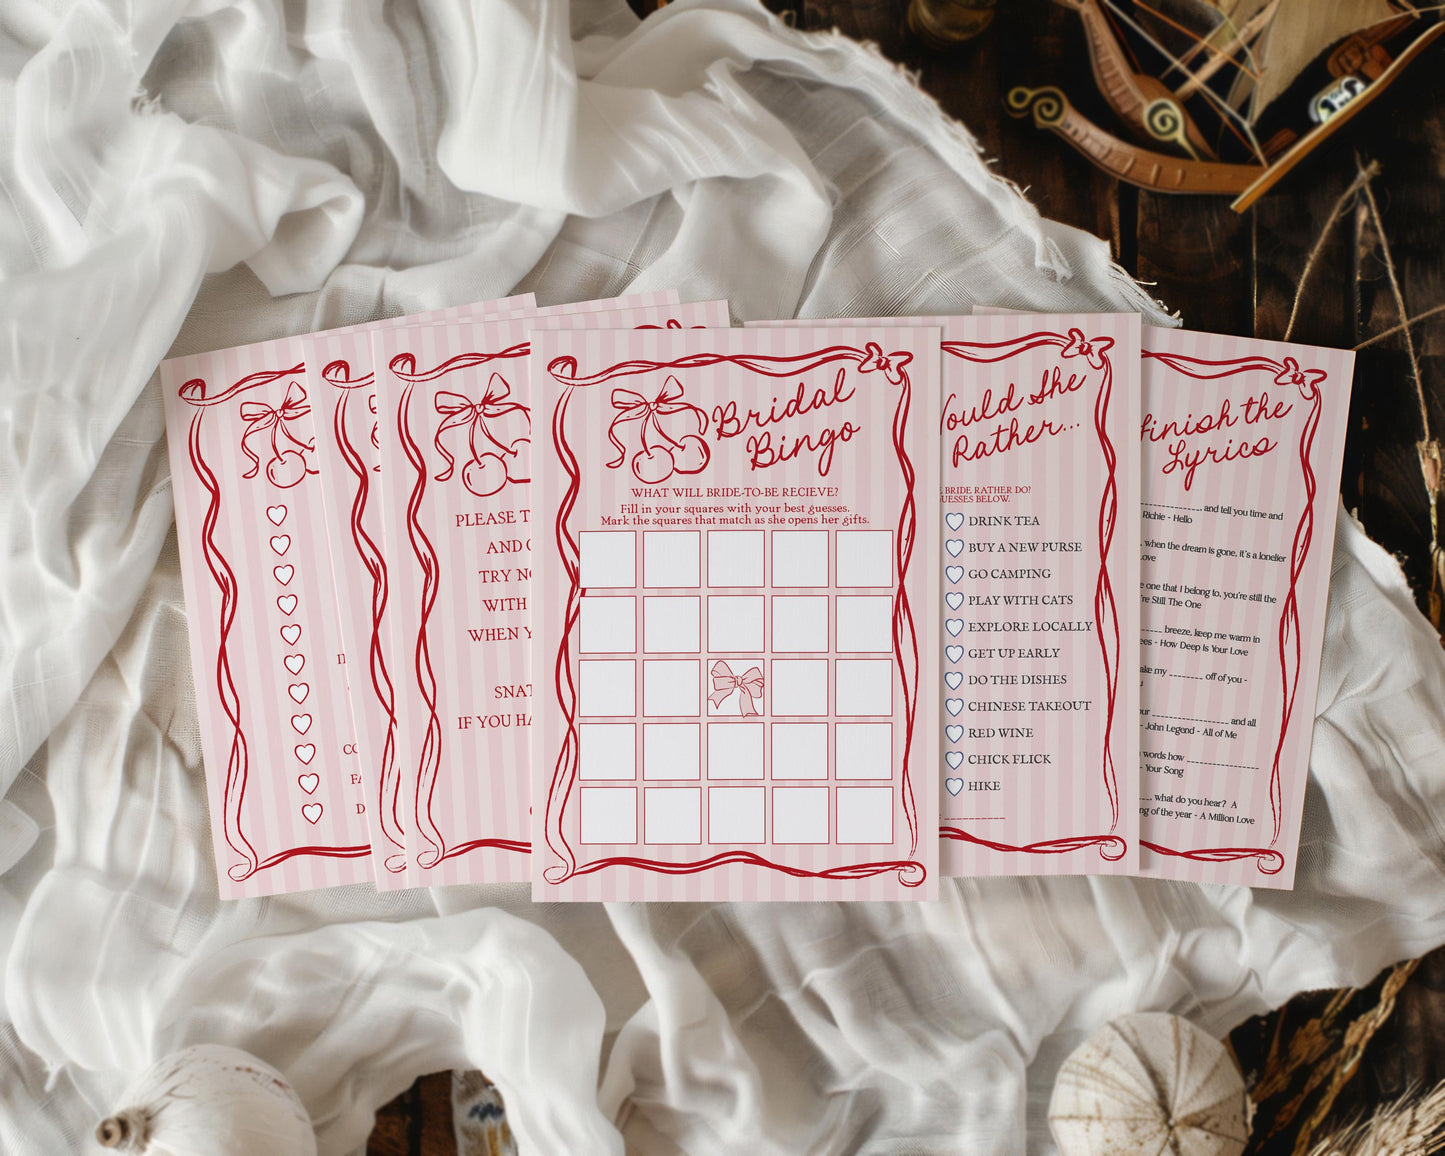 PLEASE
AND
TRY
WITH
WHEN
IF YOU
Bridal
Bingo
WHAT WILL BRIDE-TO-BE RECIEVE?
Fill in your squares with your best guesses.
Mark the squares that match as she opens her gifts.
She
Rather...
BRIDE RATHER DO?
BELOW.
DRINK TEA
BUY A NEW PURSE
GO CAMPING
PLAY WITH CATS
EXPLORE LOCALLY
GET UP EARLY
DO THE DISHES
CHINESE TAKEOUT
RED WINE
CHICK FLICK
HIKE
Finish the
Lyrics
and tell you time and
Richie - Hello
when the dream is gone, it's a lonelier
one that I belong to, you're still the
Still The One
breeze, keep me warm in
- How Deep Is Your Love
my ________ off of you -
and all
- John Legend - All of Me
words how
- Your Song
, what do you hear? A
of the year - A Million Love